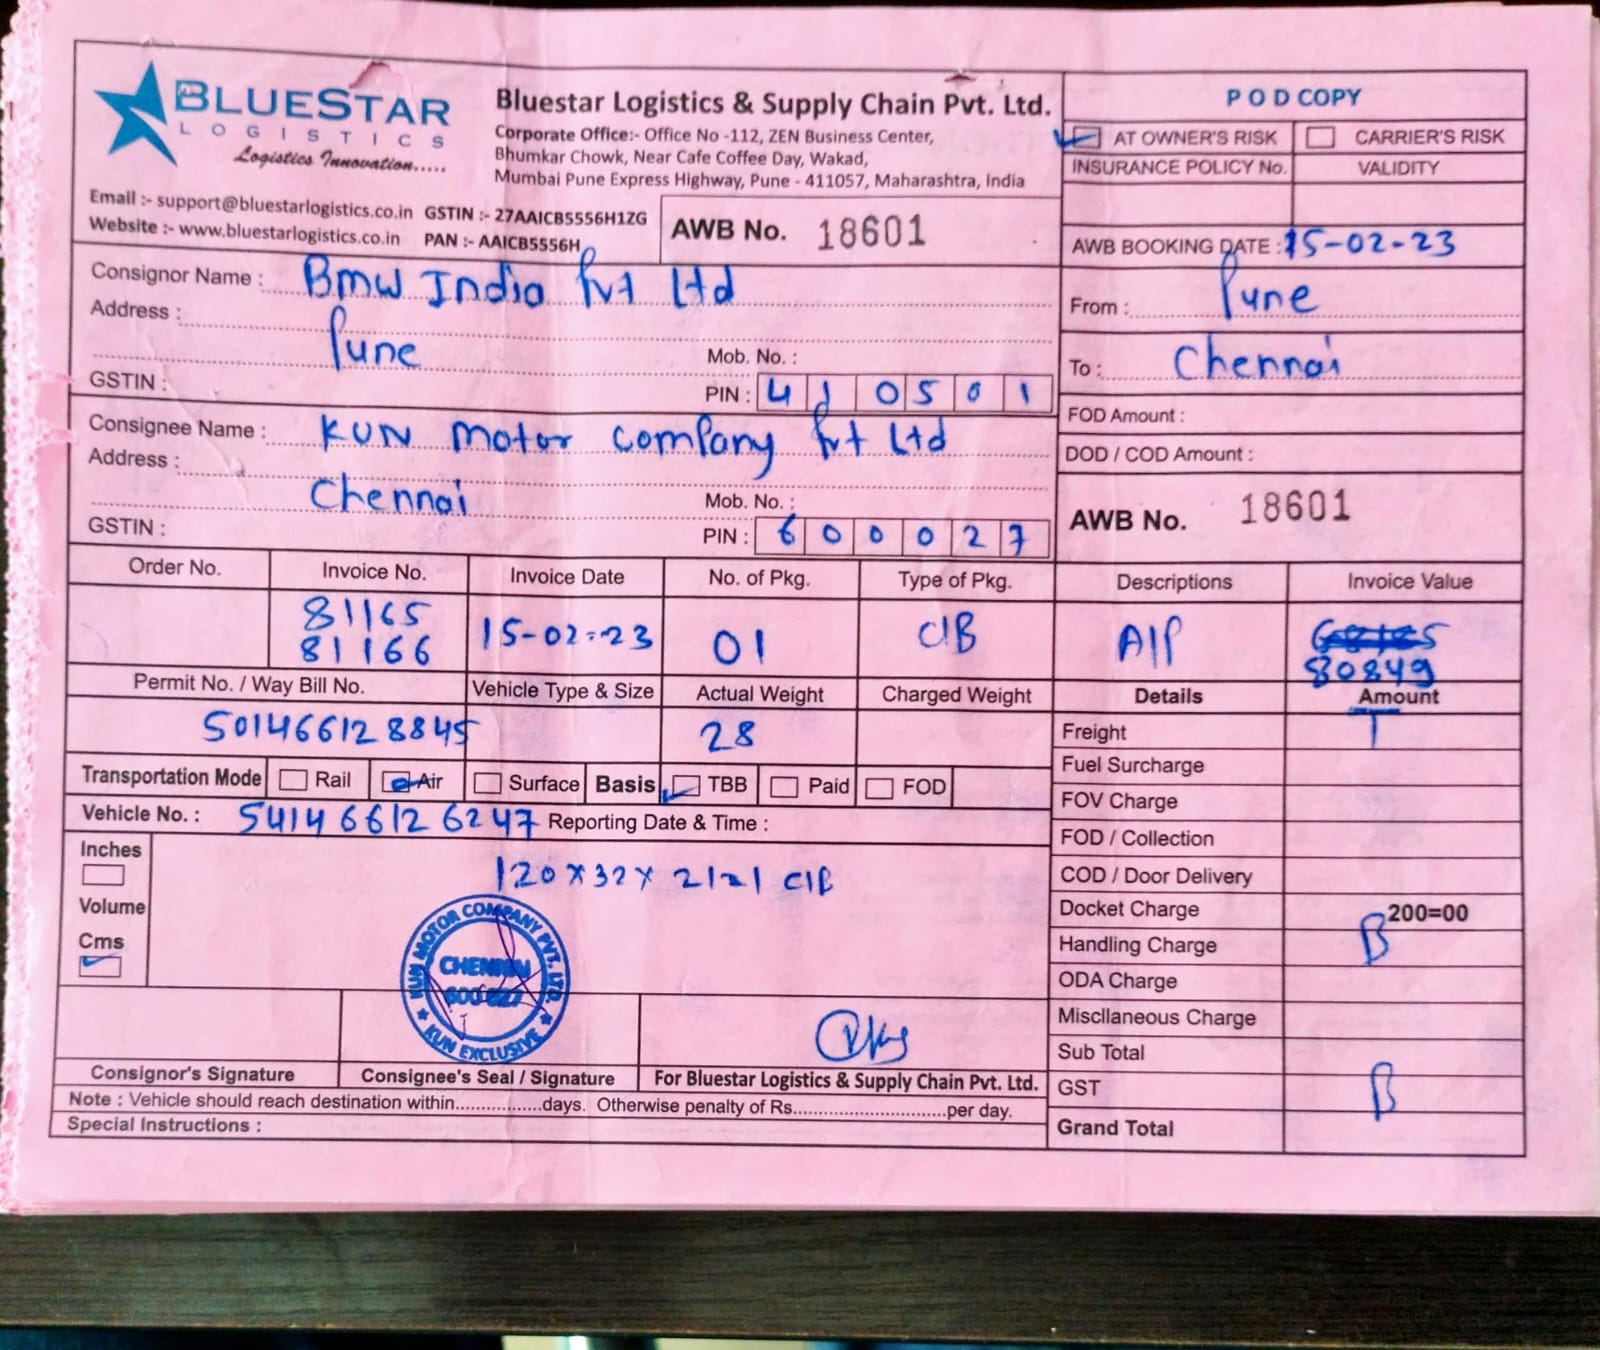 BLUESTAR
LOGISTICS
Logistics Innovation.....
Bluestar Logistics & Supply Chain Pvt. Ltd.
Corporate Office:- Office No -112, ZEN Business Center,
Bhumkar Chowk, Near Cafe Coffee Day, Wakad,
Mumbai Pune Express Highway, Pune - 411057, Maharashtra, India
Email :- support@bluestarlogistics.co.in GSTIN :- 27AAICB5556H1ZG
Website :- www.bluestarlogistics.co.in PAN :- AAICB5556H
AWB No. 18601
P O D COPY
AT OWNER'S RISK CARRIER'S RISK
INSURANCE POLICY No. VALIDITY
AWB BOOKING DATE : 15-02-23
From : Pune
To : Chennai
FOD Amount :
DOD / COD Amount :
AWB No. 18601
Consignor Name : Bmw India Pvt Ltd
Address :
Pune Mob. No. :
GSTIN : PIN : 410501
Consignee Name : KUN Motor Company Pvt Ltd
Address :
Chennai Mob. No. :
GSTIN : PIN : 600027
Order No. Invoice No. Invoice Date No. of Pkg. Type of Pkg. Descriptions Invoice Value
81165
81166 15-02-23 01 C/B A/P
80849
Permit No. / Way Bill No. Vehicle Type & Size Actual Weight Charged Weight Details Amount
501466128845 28
Transportation Mode Rail Air Surface Basis TBB Paid FOD
Vehicle No. : 541466126247 Reporting Date & Time :
Inches
Volume
Cms
120x32x21 C/B
KUN MOTOR COMPANY PVT. LTD.
CHENNAI
600 027
★ KUN EXCLUSIVE ★
Consignor's Signature Consignee's Seal / Signature For Bluestar Logistics & Supply Chain Pvt. Ltd.
Note : Vehicle should reach destination within.................days. Otherwise penalty of Rs............................per day.
Special Instructions :
Freight T
Fuel Surcharge
FOV Charge
FOD / Collection
COD / Door Delivery
Docket Charge 200=00
Handling Charge B
ODA Charge
Miscllaneous Charge
Sub Total
GST B
Grand Total